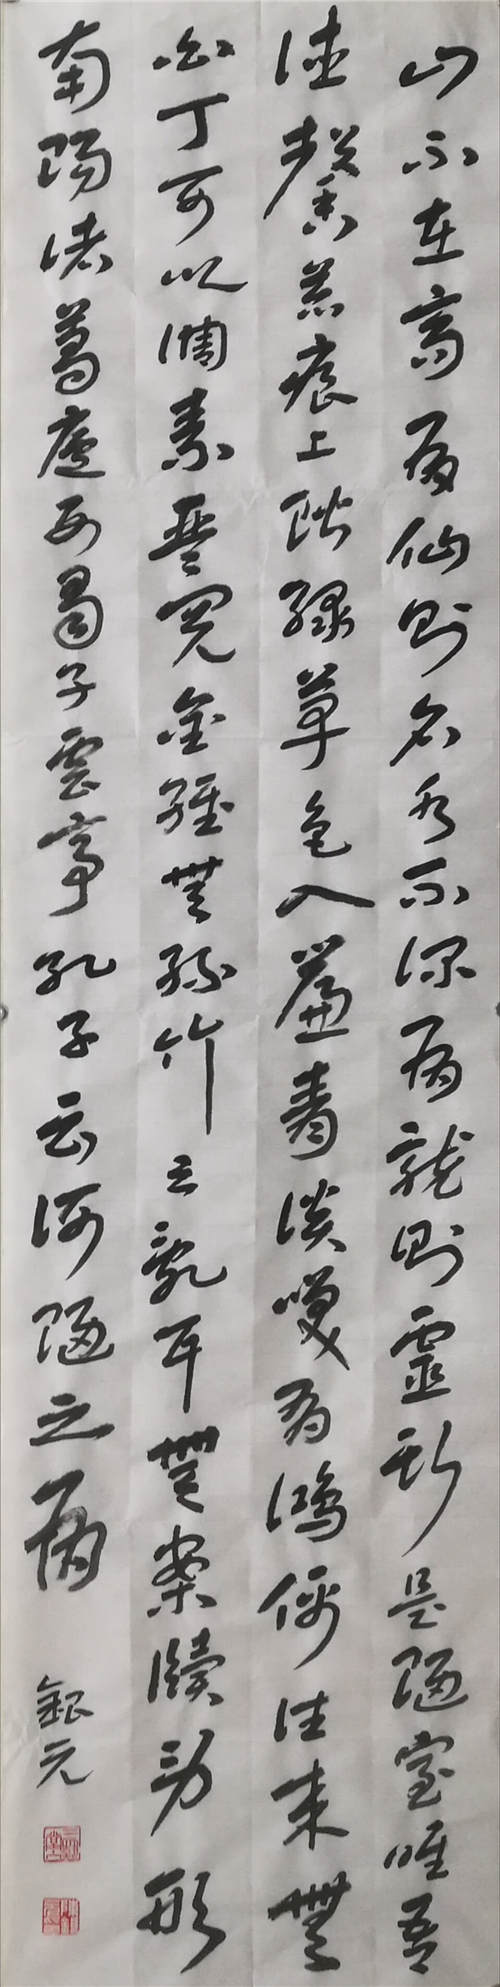 山不在高有仙則名水不深有龍則靈斯是陋室唯吾
德馨苔痕上階綠草色入簾青談咲有鴻儒往来無
白丁可以調素琴閱金經無絲竹之亂耳無案牘勞形
南陽诸葛廬西蜀子雲亭孔子云何陋之有
銀元